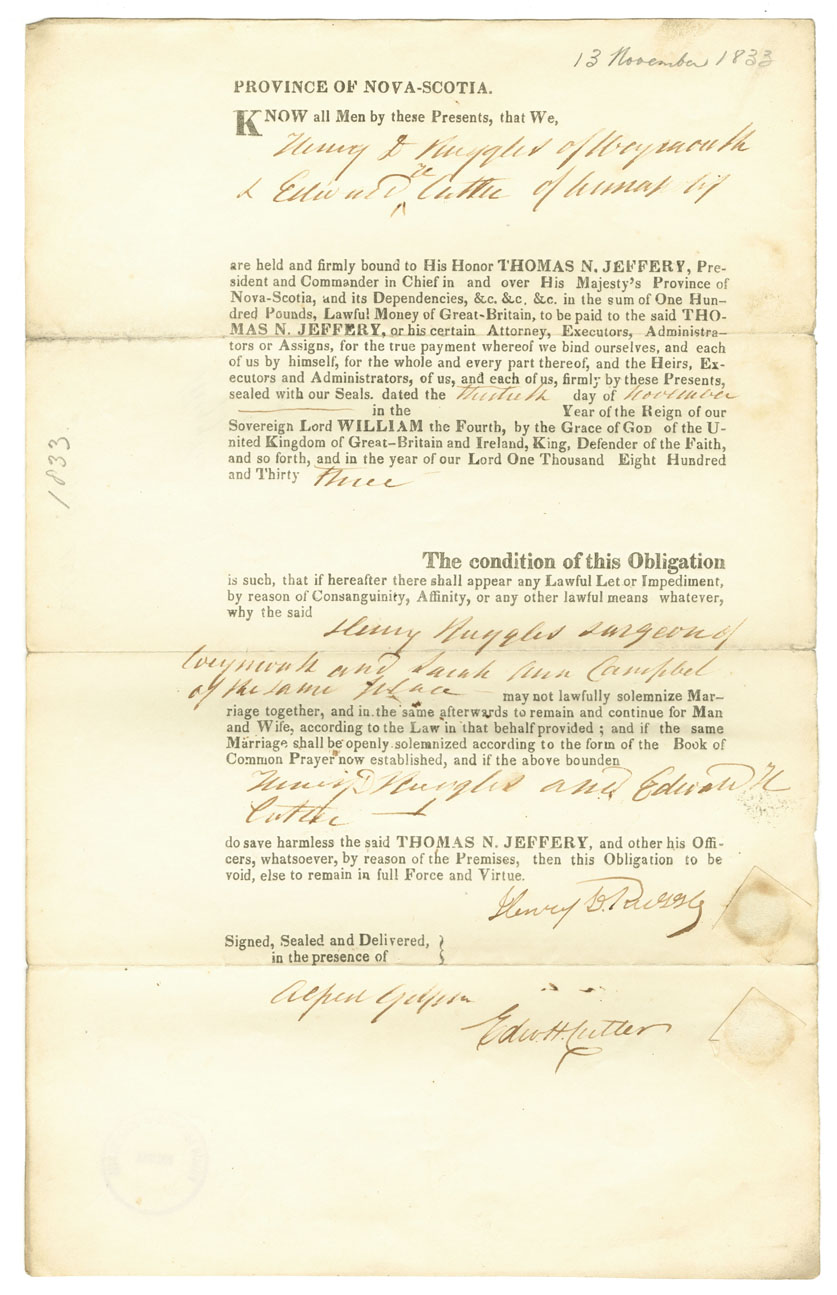 13 November 1833
PROVINCE OF NOVA-SCOTIA.
KNOW all Men by these Presents, that We,
Henry D Ruggles of Weymouth
& Edward H Cutler of Annap
are held and firmly bound to His Honor THOMAS N. JEFFERY, Pre-
sident and Commander in Chief in and over His Majesty's Province of
Nova-Scotia, and its Dependencies, &c. &c. &c. in the sum of One Hun-
dred Pounds, Lawful Money of Great-Britain, to be paid to the said THO-
MAS N. JEFFERY, or his certain Attorney, Executors, Administra-
tors or Assigns, for the true payment whereof we bind ourselves, and each
of us by himself, for the whole and every part thereof, and the Heirs, Ex-
ecutors and Administrators, of us, and each of us, firmly by these Presents,
sealed with our Seals. dated the day of November
in the Year of the Reign of our
Sovereign Lord WILLIAM the Fourth, by the Grace of GOD of the U-
nited Kingdom of Great-Britain and Ireland, King, Defender of the Faith,
and so forth, and in the year of our Lord One Thousand Eight Hundred
and Thirty three
1833.
The condition of this Obligation
is such, that if hereafter there shall appear any Lawful Let or Impediment,
by reason of Consanguinity, Affinity, or any other lawful means whatever,
why the said
Henry Ruggles surgeon of
Weymouth and Sarah Ann Campbel
of the same Place may not lawfully solemnize Mar-
riage together, and in the same afterwards to remain and continue for Man
and Wife, according to the Law in that behalf provided ; and if the same
Marriage shall be openly solemnized according to the form of the Book of
Common Prayer now established, and if the above bounden
Henry D Ruggles and Edward H
Cutler
do save harmless the said THOMAS N. JEFFERY, and other his Offi-
cers, whatsoever, by reason of the Premises, then this Obligation to be
void, else to remain in full Force and Virtue.
Henry D. Ruggles
Signed, Sealed and Delivered,
in the presence of
Edw. H. Cutler